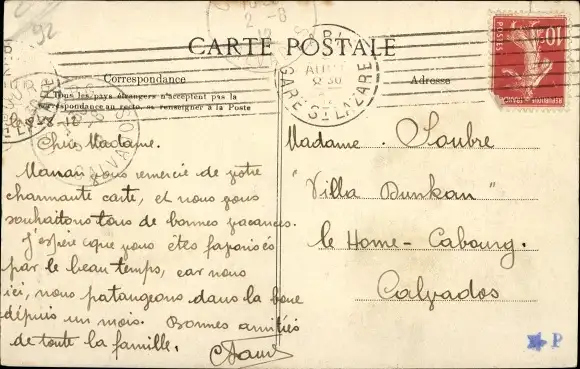 92
CARTE POSTALE
Correspondance
Tous les pays étrangers n'acceptent pas la
correspondance au recto, se renseigner à la Poste
Adresse
GARE St LAZARE
10c
POSTES
Chère Madame.
Maman vous remercie de votre
charmante carte, et nous vous
souhaitons tous de bonnes vacances.
J'espère que vous êtes favorisés
par le beau temps, car nous
ici, nous patangeons dans la boue
depuis un mois. Bonnes amitiés
de toute la famille.
Madame Soubre
"Villa Dunkan"
le Home-Cabourg.
Calvados
P